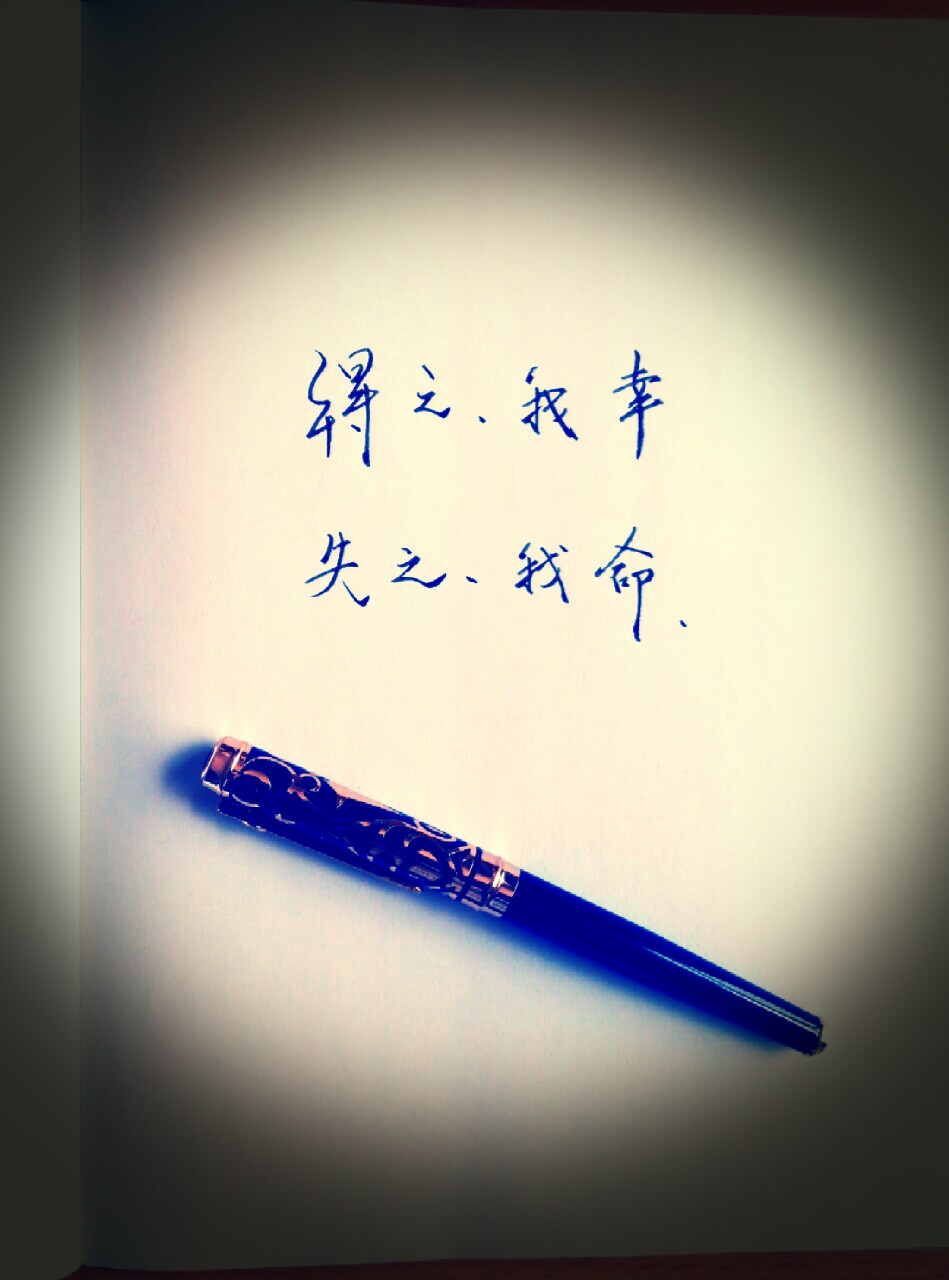 得之、我幸
失之、我命.